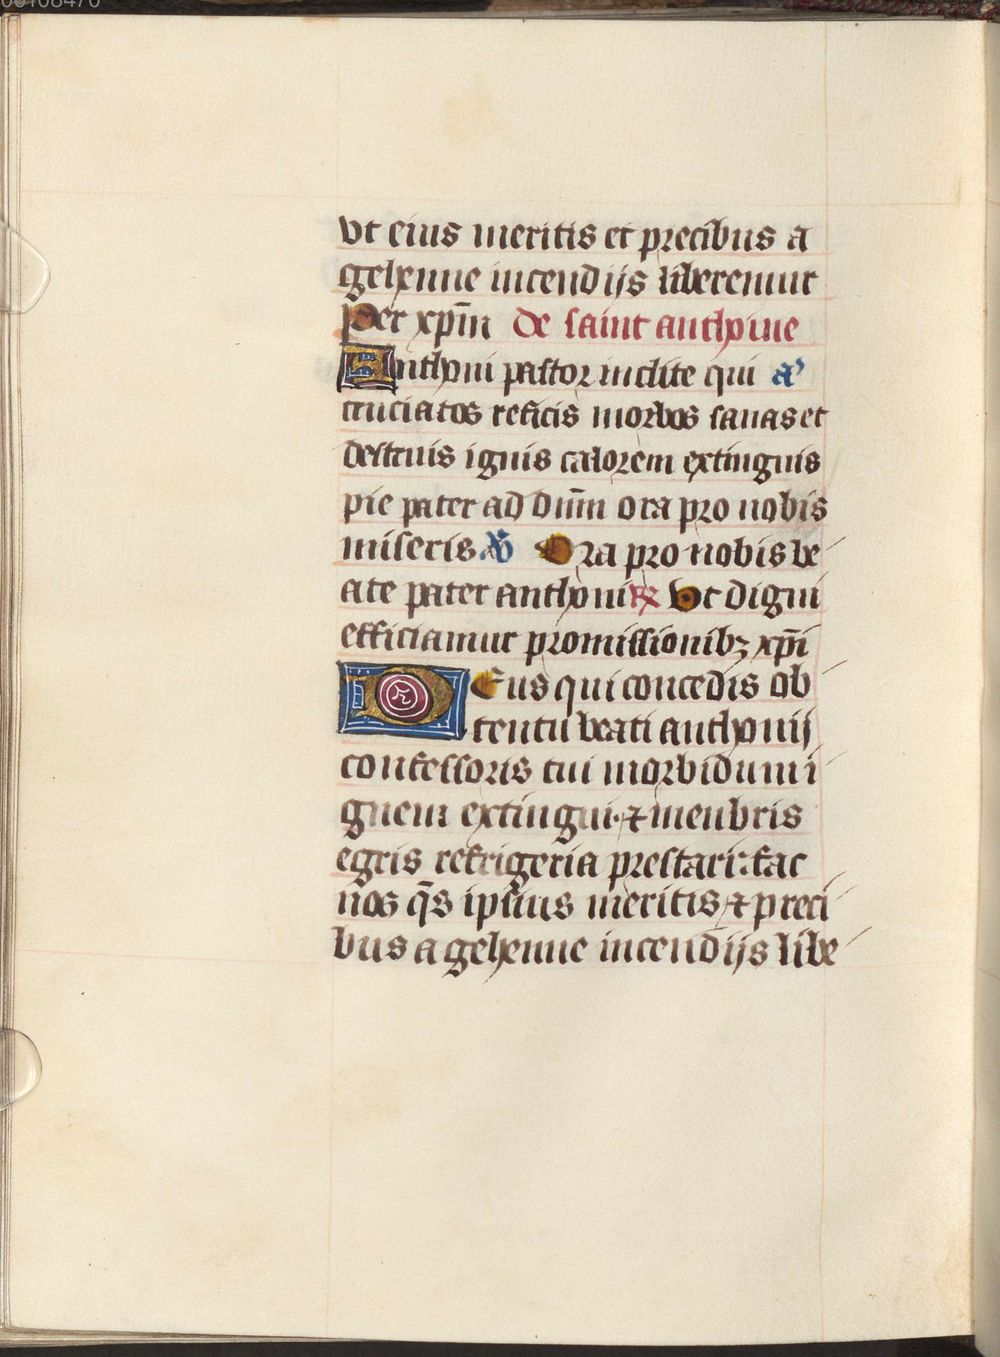 vt eius meritis et precibus a
gehenne incendijs liberemur
Per xp̄m de saint anthoine
Anthoni pastor inclite qui aͣ
cruciatos reficis morbos sanas et
destruis ignis calorem extinguis
pie pater ad dūm ora pro nobis
miseris ℣ Ora pro nobis be
ate pater anthoni ℟ Vt digni
efficiamur promissionibꝫ xp̄i
Deus qui concedis ob
tentu beati anthonij
confessoris tui morbidum i
gnem extingui ⁊ menbris
egris refrigeria prestari: fac
nos q̄s ipsius meritis ⁊ preci
bus a gehenne incendijs libe